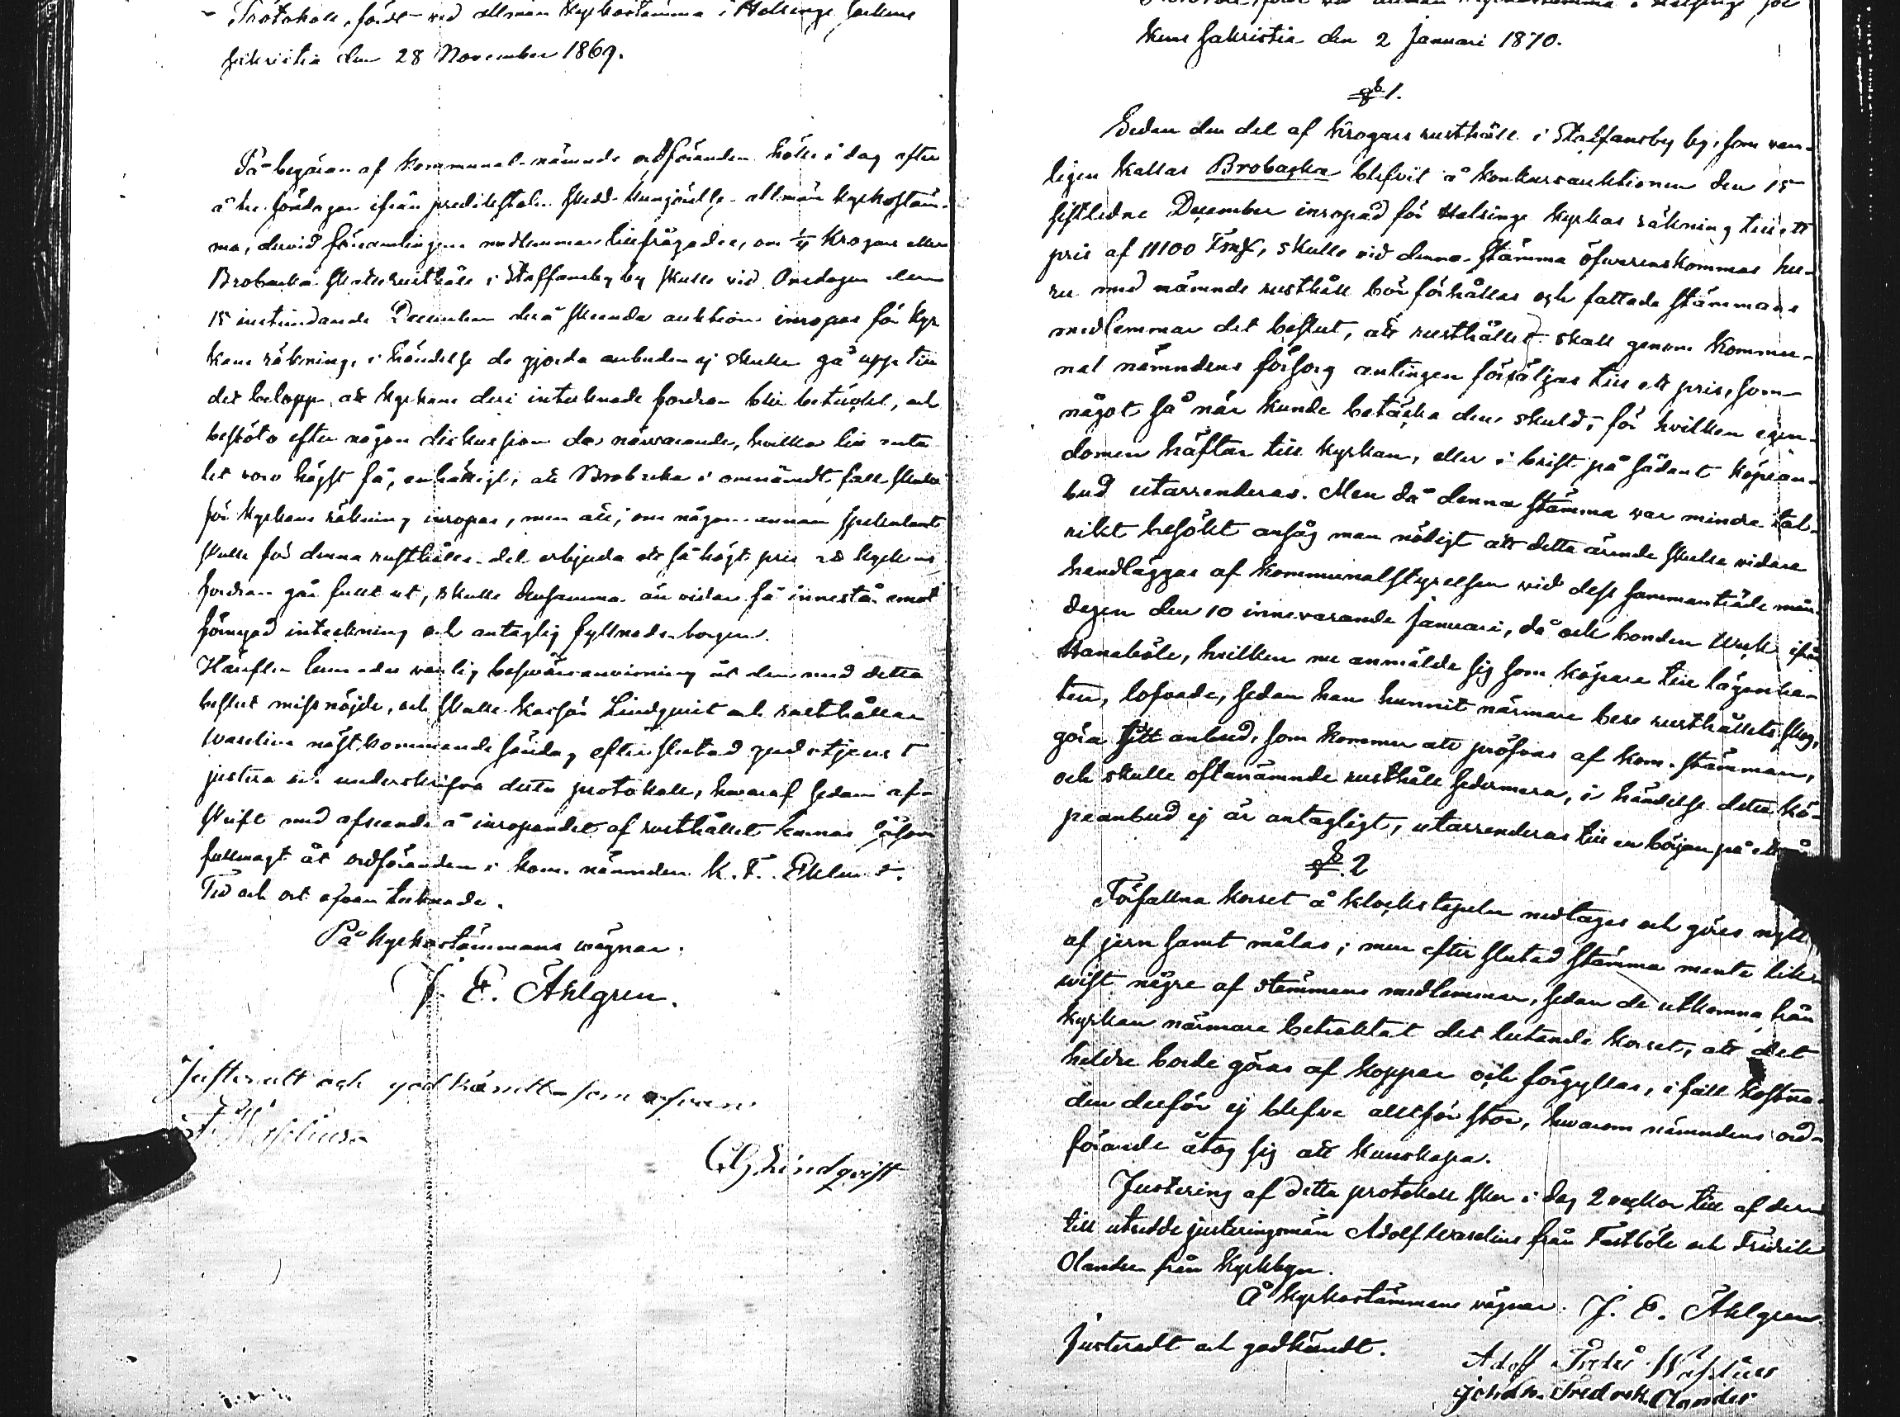 Protokoll, fördt vid allmän kyrkostämma i Helsinge sockens
sakristia den 28 November 1869.
På begäran af kommunal-nämnds ordföranden hölls i dag efter
å tre söndagar ifrån predikstolen skedd kungörelse allmän kyrkostäm-
ma, dervid församlingens medlemmar tillfrågades, om 1/4 Krogars eller
Brobacka skatterusthåll i Staffansby by skulle vid Onsdagen den
15 instundande December derå skeende auktion inropas för kyr
kans räkning, i händelse de gjorda anbuden ej skulle gå upp till
det belopp, att kyrkans deri intecknade fordran blir betäckt, och
beslöto efter någon diskussion de närvarande, hvilka till anta
let voro högst få, enhälligt, att Brobacka i omnämndt fall skulle
för kyrkans räkning inropas, men att, om någon annan spekulant
skulle för denna rusthålls del erbjuda ett så högt pris att kyrkans
fordran går fullt ut, skulle densamma än vidare få innestå emot
förnyad inteckning och antaglig fyllnads borgen.
Härefter lemnades vanlig besvärsanvisning åt den med detta
beslut missnöjde, och skulle kassör Lindqvist och rusthållar
Waselius nästkommande söndag efter slutad gudstjenst
justera och underskrifva detta protokoll, hvaraf sedan af-
skrift med afseende å inropandet af rusthållet lemnas såsom
fullmagt åt ordföranden i kom. nämnden K. F. Eklund.
Tid och ort ofvan tecknade.
På kyrkostämmans vägnar:
J. E. Åhlgren.
Justeradt och godkändt som ofvan.
F Waselius
C G Lindqvist
kens sakristia den 2 Januari 1870.
§ 1.
Sedan den del af Krogars rusthåll i Staffansby by, som van-
ligen kallas Brobacka blifvit å konkursauktionen den 15
sistledne December inropad för Helsinge kyrkas räkning till ett
pris af 11100 Fmk, skulle vid denna stämma öfverenskommas hu-
ru med nämnde rusthåll bör förhållas och fattade stämmans
medlemmar det beslut, att rusthållet skall genom kommu-
nal nämndens försorg antingen försäljas till ett pris, som
något så när kunde betäcka den skuld, för hvilken egen-
domen häftar till kyrkan, eller i brist på sådant köpean-
bud utarrenderas. Men då denna stämma var mindre tal-
rikt besökt ansåg man nödigt att detta ärende skulle vidare
handläggas af kommunalstyrelsen vid dess sammanträde mån
dagen den 10 innevarande Januari, då och bonden Weck ifrån
Hanaböle, hvilken nu anmälde sig som köpare till lägenhe-
ten, lofvade, sedan han hunnit närmare bese rusthållets skog,
göra sitt anbud, som kommer att pröfvas af kom. stämman,
och skulle oftanämnde rusthåll sedermera, i händelse detta kö-
peanbud ej är antagligt, utarrenderas till en början på ett år
§ 2
Förfallna korset å klockstapeln nedtages och göres nytt
af jern samt målas; men efter slutad stämma mente likv-
isst några af stämmans medlemmar, sedan de utkomna från
kyrkan närmare betraktat det lutande korset, att det
heldre borde göras af koppar och förgyllas, i fall kostna-
den derför ej blefve alltför stor, hvarom nämndens ord-
förande åtog sig att kunskapa.
Justering af detta protokoll sker i dag 2 veckor till af dem
till utsedde justeringsmän Adolf Waselius från Fastböle och Fredrik
Olander från Kyrkbyn.
Å kyrkostämmans vägnar: J. E. Åhlgren.
Justeradt och godkändt.
Adolf Fredr Waselius
Johan Fredrik Olander